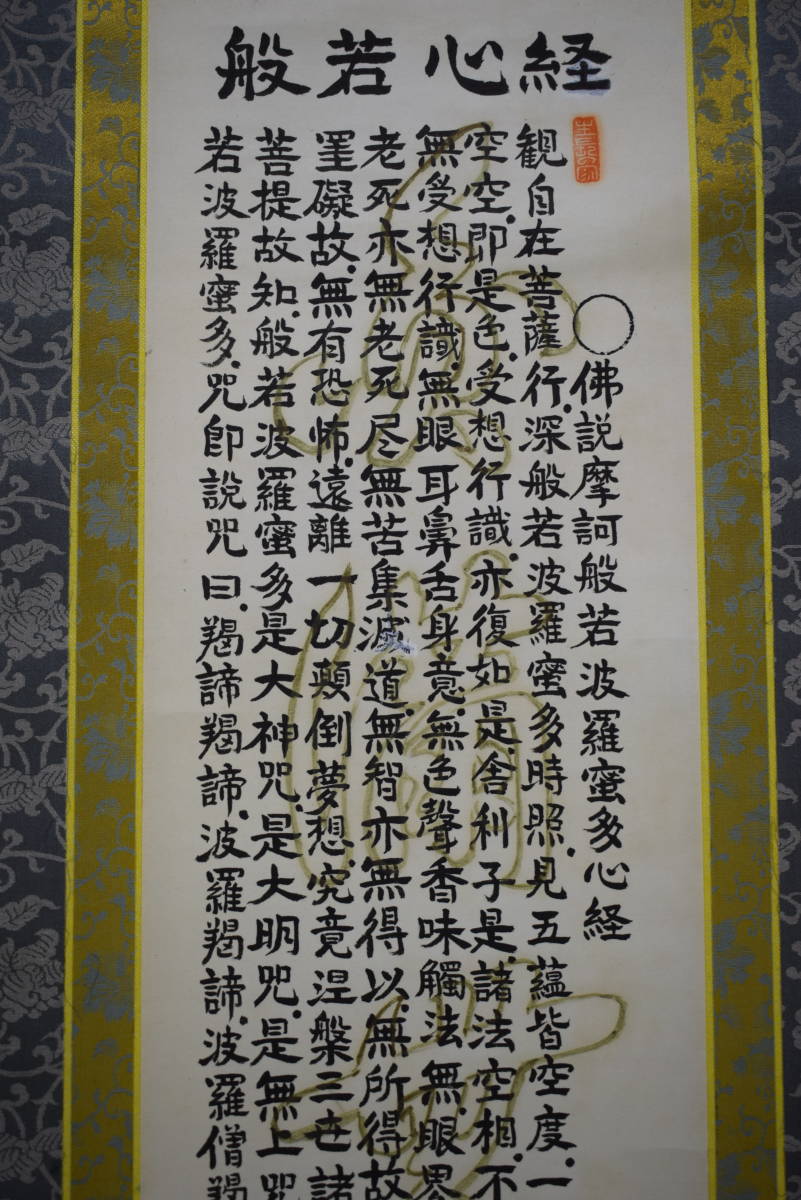 般若心経
佛説摩訶般若波羅蜜多心経
観自在菩薩行深般若波羅蜜多時照見五蘊皆空度一
空空即是色受想行識亦復如是舎利子是諸法空相不
無受想行識無眼耳鼻舌身意無色聲香味觸法無眼界
老死亦無老死尽無苦集滅道無智亦無得以無所得故
罣礙故無有恐怖遠離一切顛倒夢想究竟涅槃三世諸
菩提故知般若波羅蜜多是大神咒是大明咒是無上咒
若波羅蜜多咒即説咒曰羯諦羯諦波羅羯諦波羅僧羯